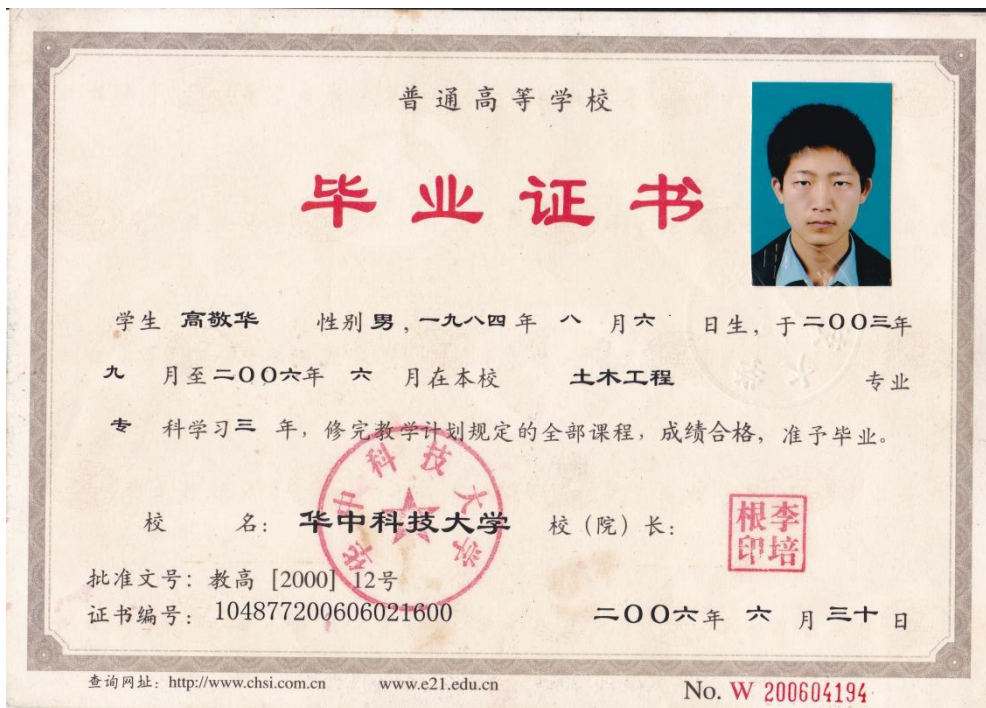 普通高等学校
毕业证书
学生 高敬华 性别 男，一九八四年 八 月六 日生，于二〇〇三年
九 月至二〇〇六年 六 月在本校 土木工程 专业
专 科学习三 年，修完教学计划规定的全部课程，成绩合格，准予毕业。
华中科技大学
校 名： 华中科技大学 校（院）长：
李培根印
批准文号：教高 [2000] 12号
证书编号：104877200606021600 二〇〇六年 六 月三十日
查询网址：http://www.chsi.com.cn www.e21.edu.cn
No. W 200604194